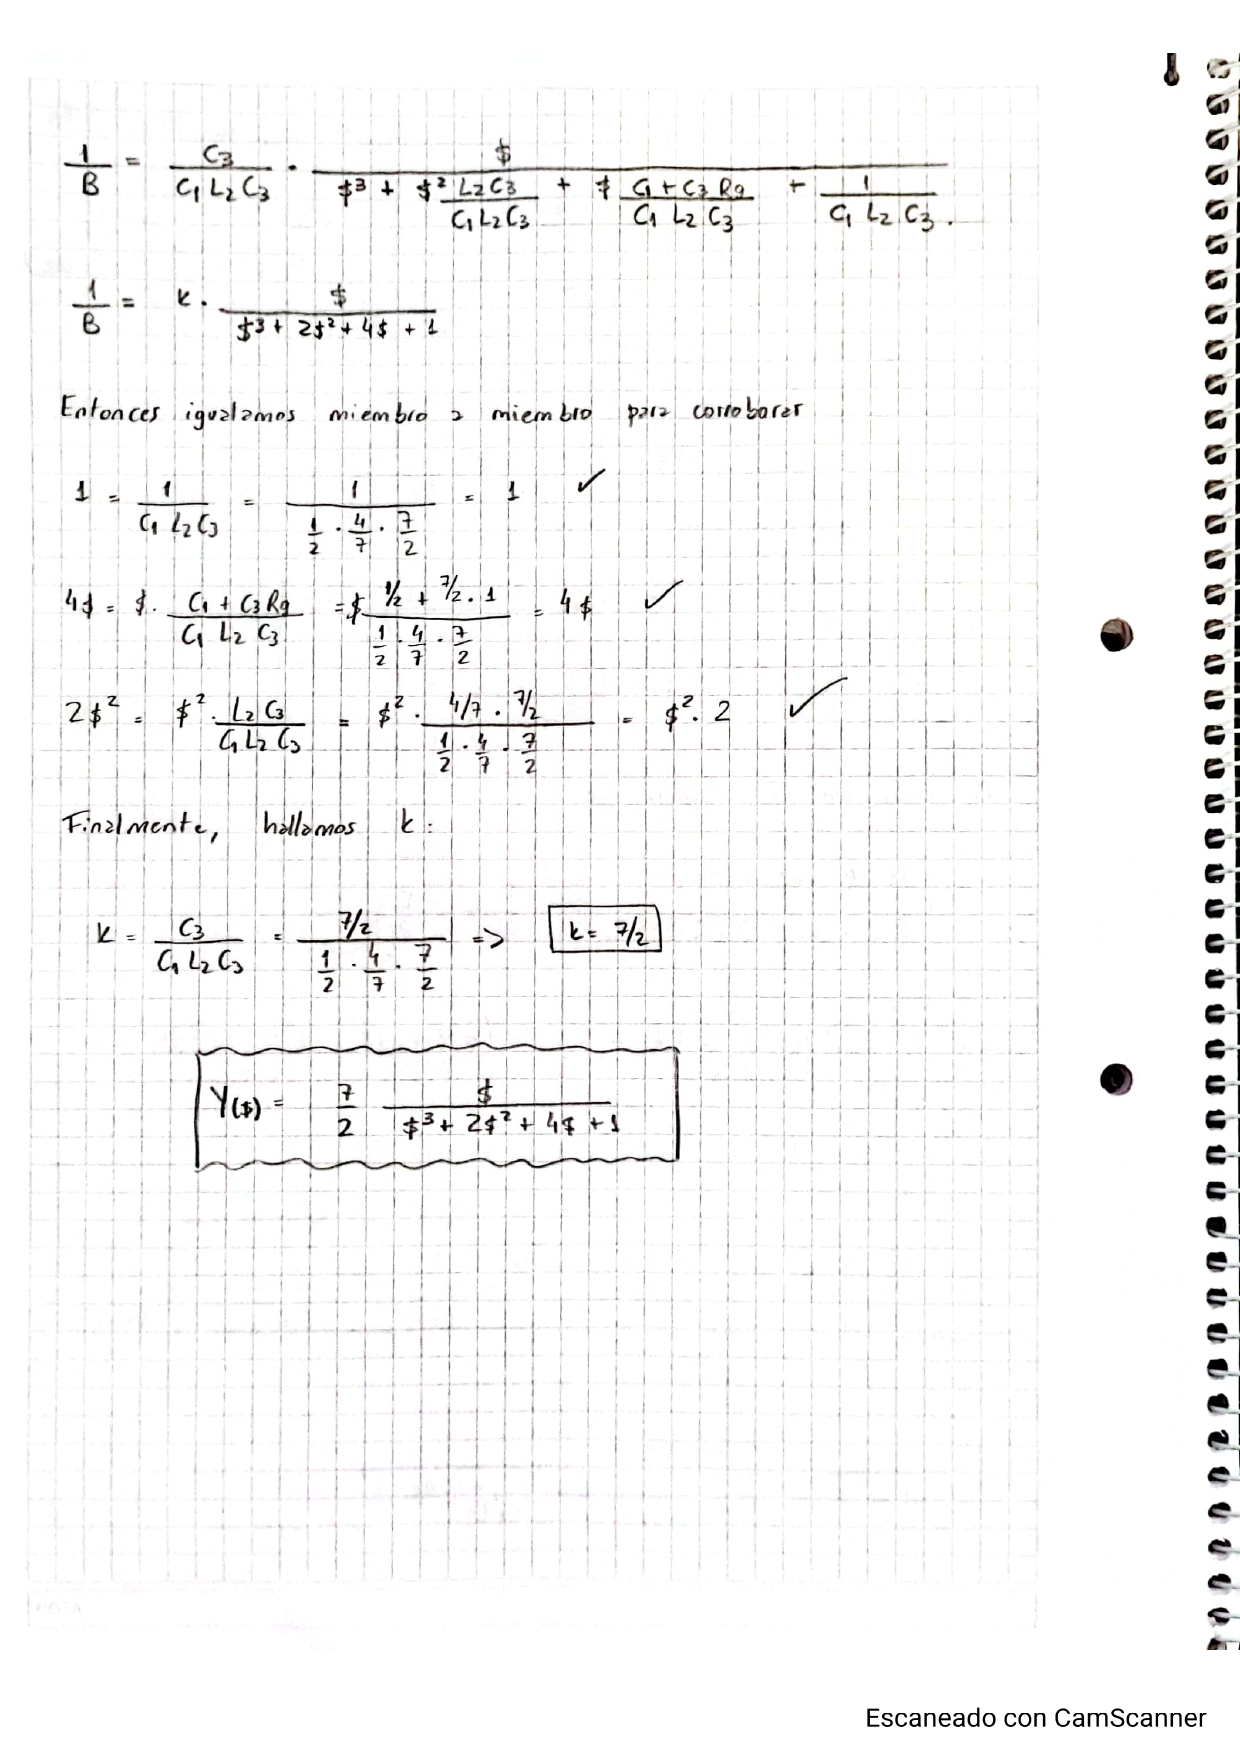 1/B = C3/(C1 L2 C3) · $/($³ + $² L2C3/(C1L2C3) + $ (C1 + C3 Rg)/(C1 L2 C3) + 1/(C1 L2 C3)).
1/B = k · $/($³ + 2$² + 4$ + 1)
Entonces igualamos miembro a miembro para corroborar
1 = 1/(C1 L2 C3) = 1/(1/2 · 4/7 · 7/2) = 1 ✓
4$ = $ · (C1 + C3 Rg)/(C1 L2 C3) = $ (1/2 + 7/2 · 1)/(1/2 · 4/7 · 7/2) = 4$ ✓
2$² = $² · L2 C3/(C1 L2 C3) = $² · (4/7 · 7/2)/(1/2 · 4/7 · 7/2) = $² · 2 ✓
Finalmente, hallamos k:
k = C3/(C1 L2 C3) = (7/2)/(1/2 · 4/7 · 7/2) => k = 7/2
Y($) = 7/2 $/($³ + 2$² + 4$ + 1)
Escaneado con CamScanner